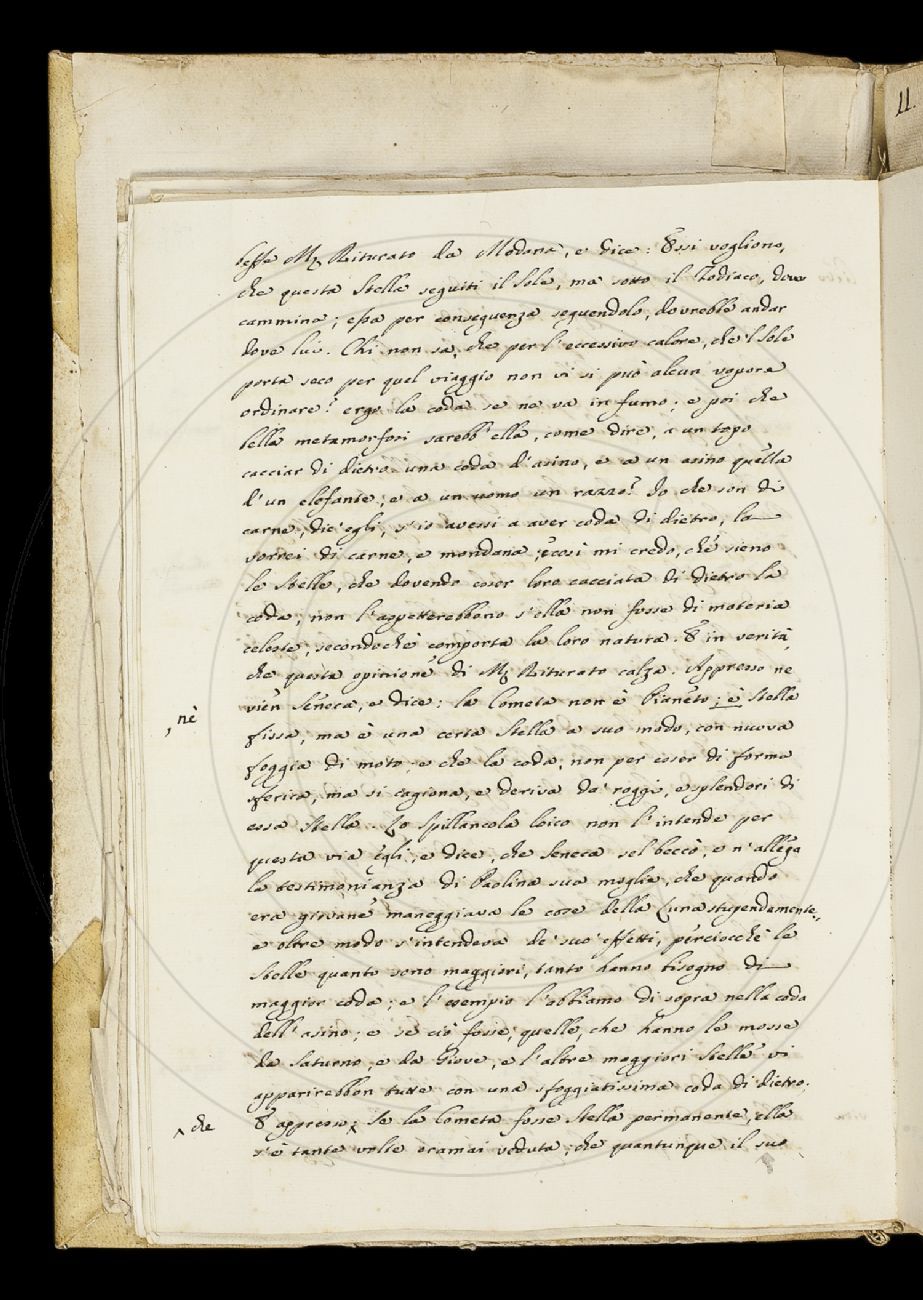 11.
beffe Mr. Riturato da Modana, e dice: Essi vogliono,
che questa Stella seguiti il Sole, ma sotto il Zodiaco, dove
cammina; essa per conseguenza seguendolo, dovrebbe andar
dove lui. Chi non sa, che per l'eccessivo calore, che'l Sole
porta seco per quel viaggio non vi si può alcun vapore
ordinare? ergo la coda se ne va in fumo; e poi che
bella metamorfosi sarebb'ella, come dire, a un topo
cacciar di dietro una coda d'asino, e a un asino quella
d'un elefante, e a un uomo un razzo? Io che son di
carne, dic'egli, s'io avessi a aver coda di dietro, la
vorrei di carne, e mondana; e così mi credo, che sieno
le Stelle, che dovendo esser loro cacciata di dietro la
coda, non l'aspetterebbono s'ella non fusse di materia
celeste, secondochè comporta la loro natura. E in verità,
che questa opinione di Mr. Riturato calza. Appresso ne
vien Seneca, e dice: la Cometa non è Pianeto; è Stella
, nè
fissa, ma è una certa Stella a suo modo, con nuova
foggia di moto, e che la coda, non per esser di forma
sferica, ma si cagiona, e deriva da' raggi, e splendori di
essa Stella. Lo Spillancola loico non l'intende per
questa via egli, e dice, che Seneca sel beccò, e n'allega
la testimonianza di Paolina sua moglie, che quando
era giovane maneggiava le cose della Luna stupendamente,
e oltre modo s'intendeva de' suo' effetti, perciocchè le
Stelle quanto sono maggiori, tanto hanno bisogno di
maggior coda; e l'esempio l'abbiamo di sopra nella coda
dell'asino; e se ciò fosse, quelle, che hanno le mosse
da Saturno, e da Giove, e l'altre maggiori Stelle vi
apparirebbon tutte con una sfoggiatissima coda di dietro.
^ che
E appresso^ Se la Cometa fosse Stella permanente, ella
s'è tante volte oramai veduta, che quantunque il suo